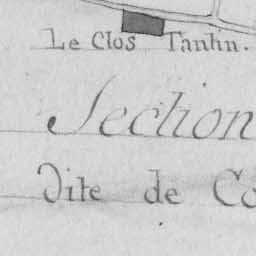 Le Clos Tantin.
Section
Dite de Co